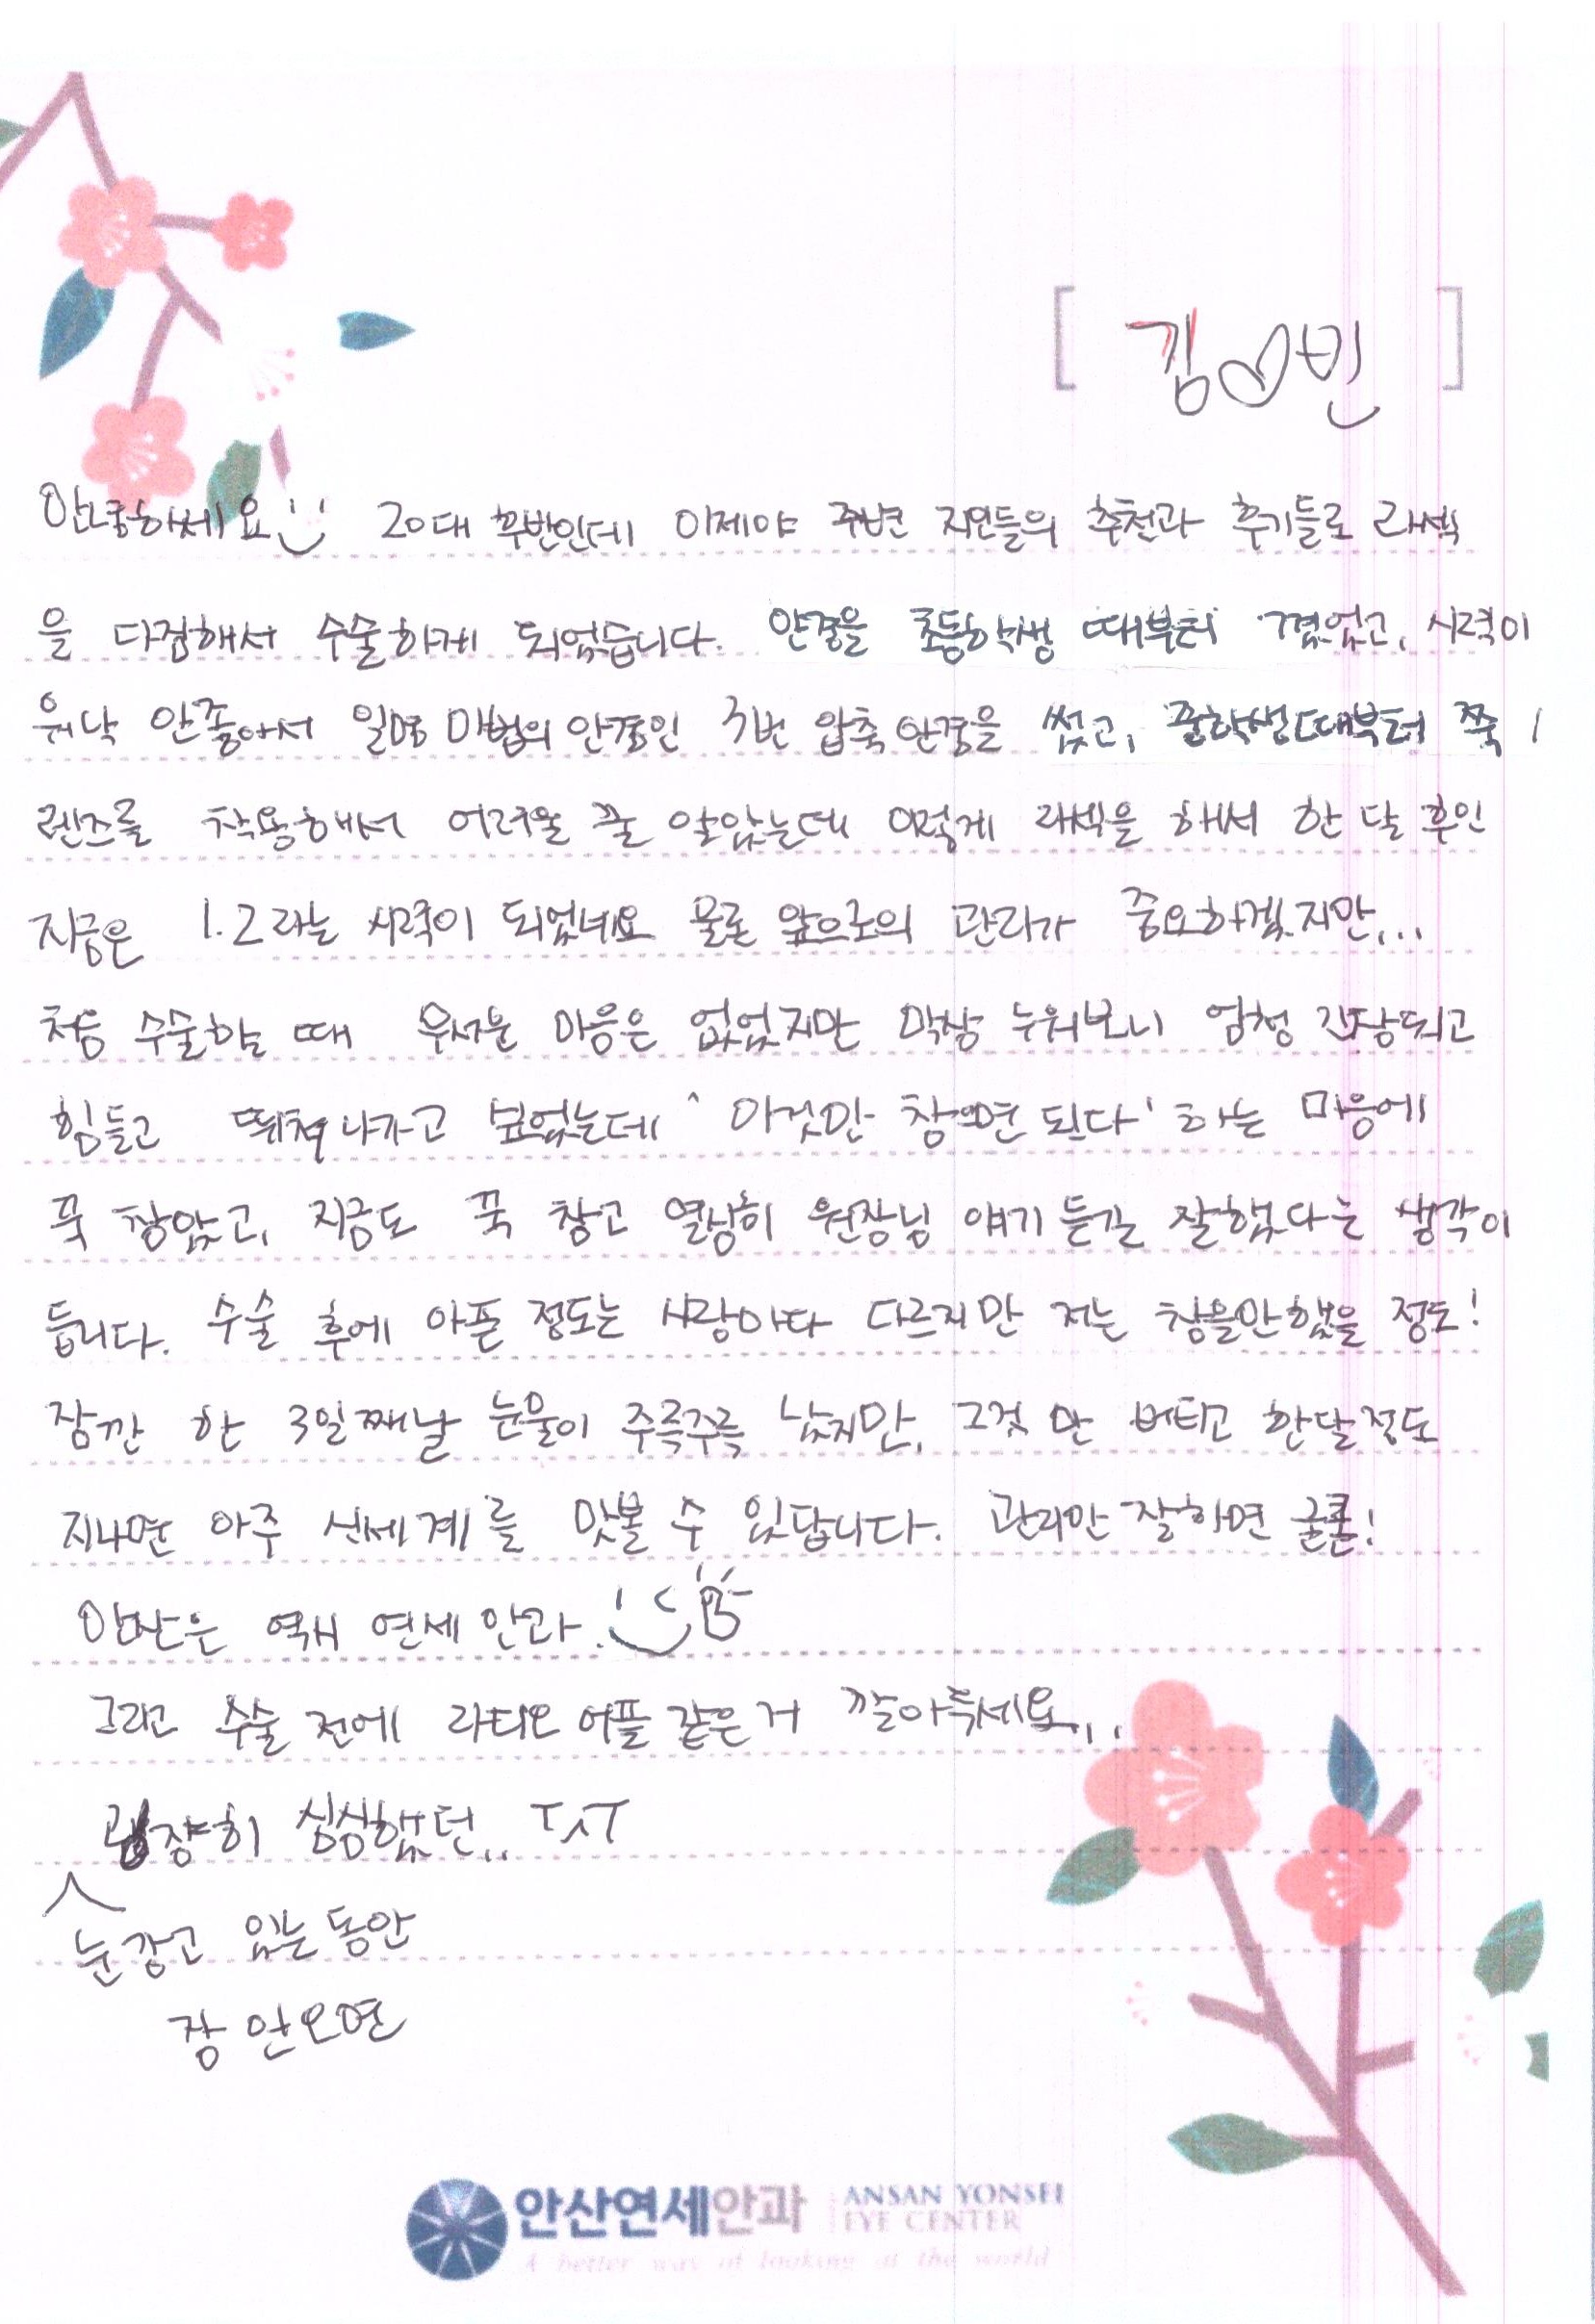 [ 김♡빈 ]
안녕하세요 20대 후반인데 이제야 주변 지인들의 추천과 후기들로 라섹
을 다짐해서 수술하게 되었습니다. 안경을 초등학생 때부터 꼈었고, 시력이
워낙 안좋아서 일명 마법의 안경인 3번 압축 안경을 썼고, 중학생때부터 쭉
렌즈를 착용해서 어려울 줄 알았는데 이렇게 라섹을 해서 한 달 후인
지금은 1.2라는 시력이 되었네요 물론 앞으로의 관리가 중요하겠지만...
처음 수술할 때 무서운 마음은 없었지만 막상 누워보니 엄청 긴장되고
힘들고 뛰쳐나가고 싶었는데 '이것만 참으면 된다' 하는 마음에
꾹 참았고, 지금도 꾹 참고 열심히 원장님 얘기 듣길 잘했다는 생각이
듭니다. 수술 후에 아픈 정도는 사람마다 다르지만 저는 참을만했을 정도!
잠깐 한 3일째날 눈물이 주륵주륵 났지만, 그것 만 버티고 한달정도
지나면 아주 신세계를 맛볼 수 있답니다. 관리만 잘하면 굳!
안산은 역시 연세 안과.
그리고 수술 전에 라디오 어플 같은거 깔아두세요...
굉장히 심심했던.. ㅜㅅㅜ
눈감고 있는 동안
잠 안오면
안산연세안과 ANSAN YONSEI
EYE CENTER
A better way of looking at the world